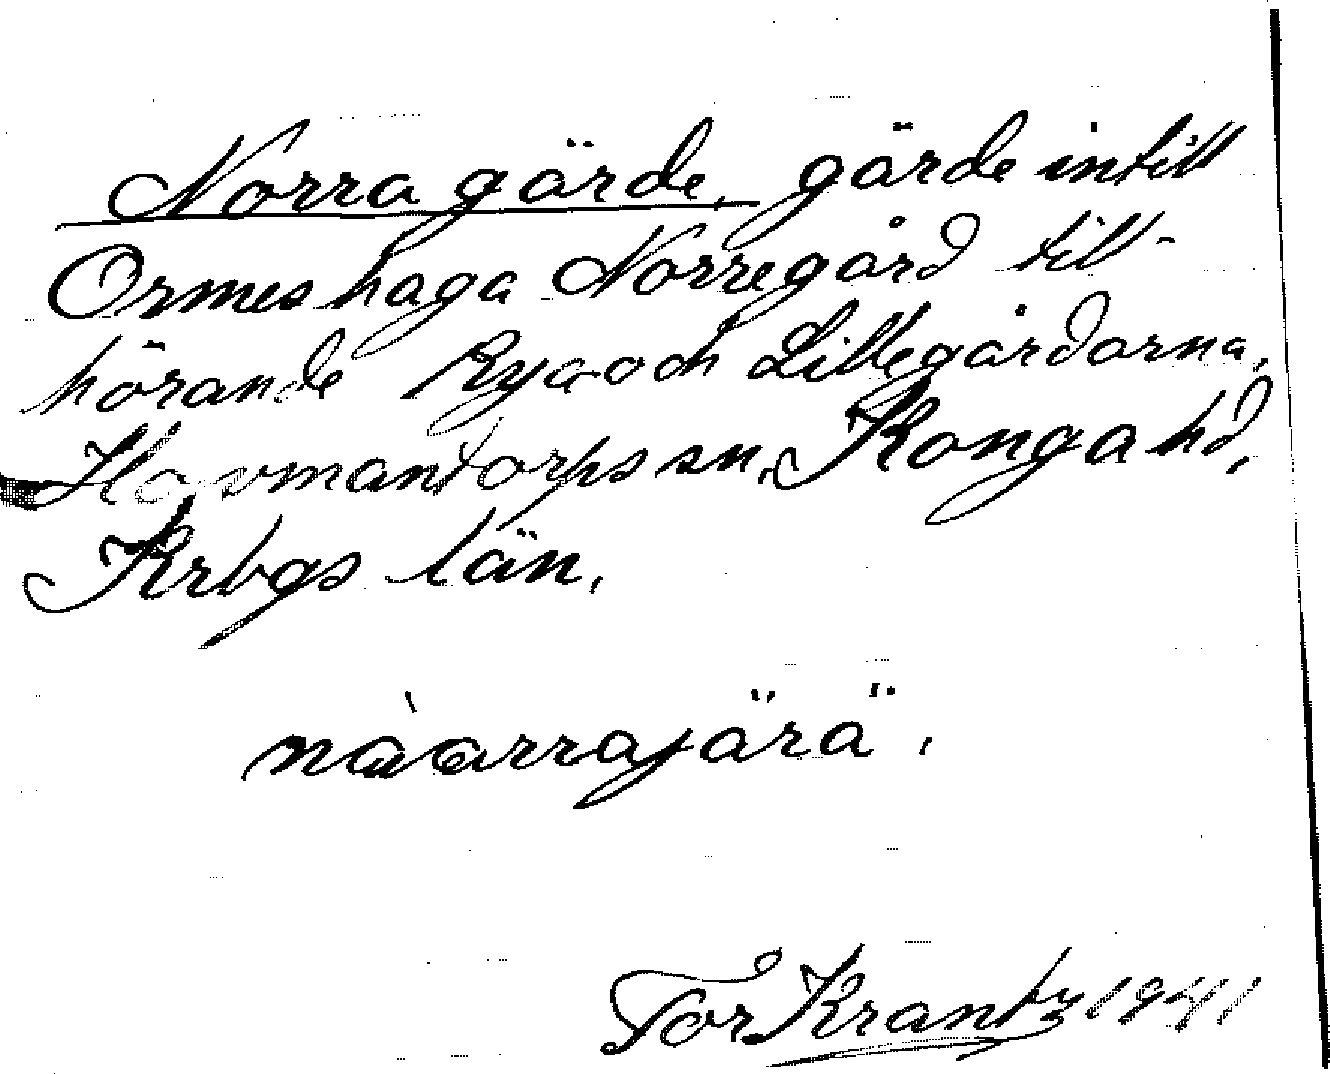 Norra gärde, gärde intill
Ormeshaga Norregård till-
hörande Rya och Lillegårdarna,
Hovmantorps sn, Konga hd,
Krbgs län.
nàarrajärä.
Tor Krantz 1941